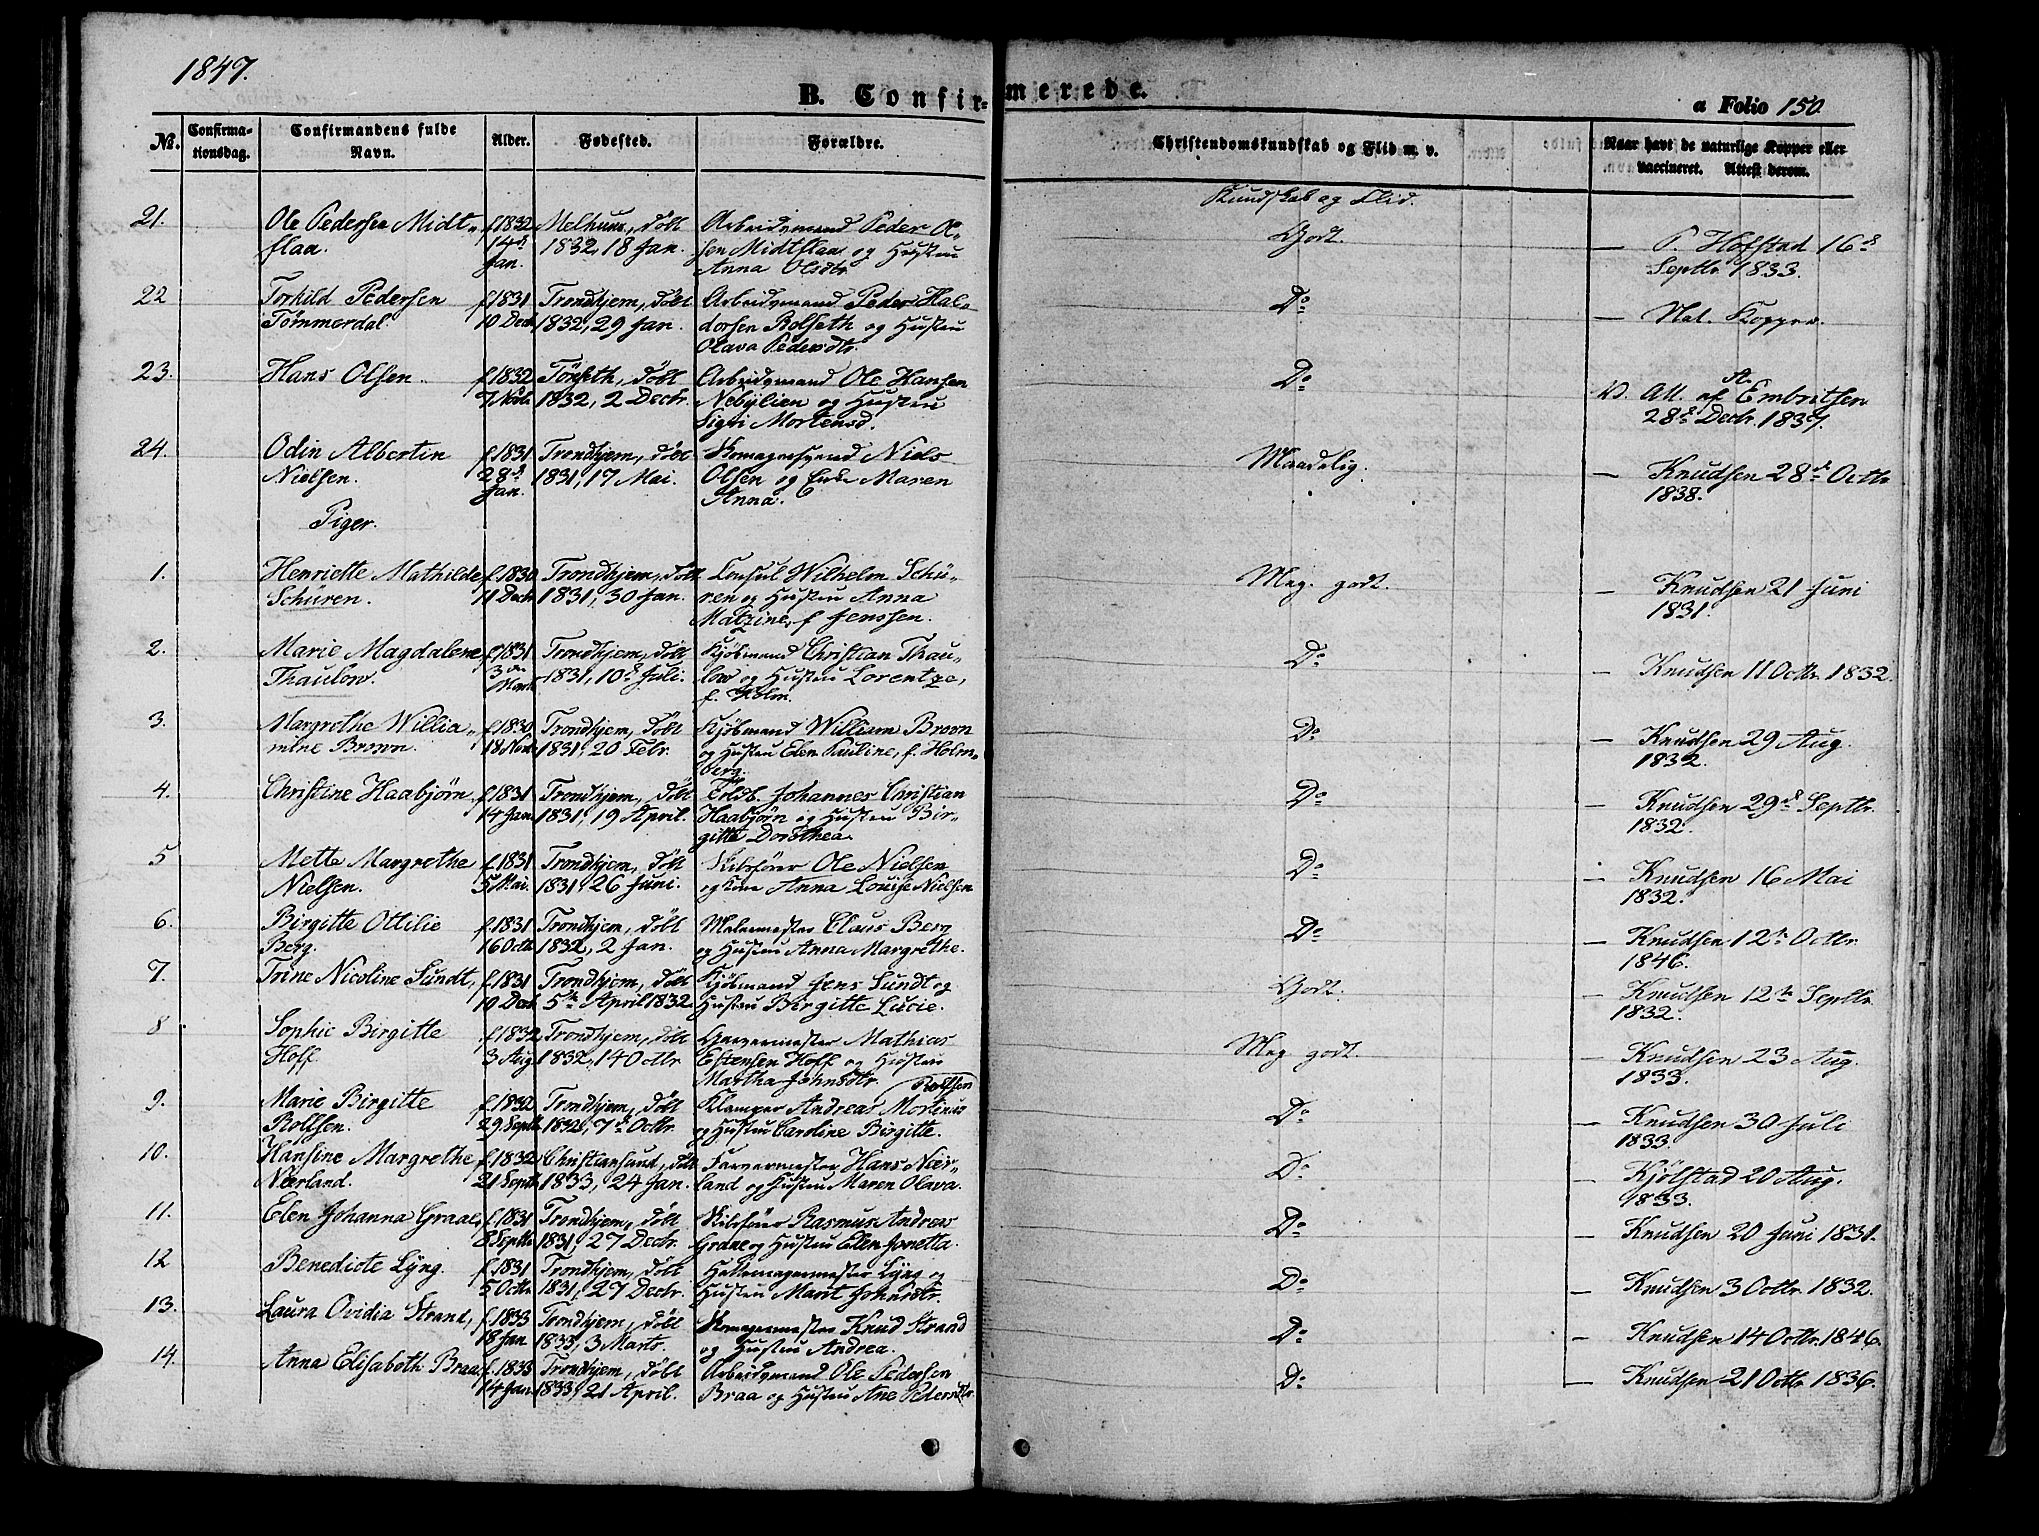 1847.
B. Confirmerede.
a Folio 150.
No. Confirmationsdag. Confirmandens fulde Navn. Alder. Fødested. Forældre. Christendomskundskab og Flid m. v. Naar havt de naturlige Kopper eller vaccineret. Attest derom.
Kundskab og Flid.
21. Ole Pedersen Midt- f. 1832 Melhuus, døbt Arbeidsmand Peder Ol- Godt. — P. Hofstad 16d
flaa. 14d 1832, 18 Jan. sen Midtflaa og Hustru Septbr. 1833.
Jan. Anna Olsdtr.
22 Torkild Pedersen f. 1831 Trondhjem, døbt Arbeidsmand Peder Hal- Do — Nat. Kopper.
Tømmerdal. 10 Dec. 1832, 29 Jan. dorsen Rolseth og Hustru
Olava Pedersdtr.
23. Hans Olsen. f. 1832 døbt Arbeidsmand Ole Hansen Do V. Att. af A. Embritsen
7 Novb. 1832, 2 Decbr. Nebylien og Hustru 28d Decbr. 1837.
Sigri Mortensd.
24. Odin Albertin f. 1831 Trondhjem, døbt Niels Maadelig. — Knudsen 28d Octbr.
Nielsen. 28d 1831, 17 Mai. Olsen og Enke Maren 1838.
Jan. Anna.
Piger.
1. Henriette Mathilde f. 1830 Trondhjem, døbt Consul Wilhelm Schü- Meg. godt. — Knudsen 21 Juni
Schüren. 11 Dech 1831, 30 Jan. ren og Hustru Anna 1831.
Matzine, f. Jenssen.
2. Marie Magdalene f. 1831 Trondhjem, døbt Kjøbmand Christian Thau- Do — Knudsen 11 Octbr. 1832.
Thaulow. 3die Marts 1831, 10d Juli. low og Hustru Lorentze,
f. Holm.
3. Margrethe Willia- f. 1830 Trondhjem, døbt Kjøbmand William Brown Do — Knudsen 29 Aug.
mine Brown. 18 Novb. 1831, 20 Febr. og Hustru Elen Pauline, f. Holm- 1832.
berg.
4. Christine Haabjørn. f. 1831 Trondhjem, døbt Toldb. Johannes Christian Do — Knudsen 29d Septbr.
14 Jan. 1831, 19 April. Haabjørn og Hustru Bir- 1832.
gitte Dorothea.
5 Mette Margrethe f. 1831 Trondhjem, døbt Skibsfører Ole Nielsen Do — Knudsen 16 Mai
Nielsen. 5 Mai. 1831, 26 Juni. og Kone Anna Louise Nielsen 1832.
6. Birgitte Ottilie f. 1831 Trondhjem, døbt Malermester Claus Berg Do — Knudsen 12te Octbr.
Berg. 16 Octb. 1832, 2 Jan. og Hustru Anna Margrethe. 1846.
7. Trine Nicoline Sundt, f. 1831 Trondhjem, døbt Kjøbmand Jens Sundt og Godt. — Knudsen 12te Septbr.
10 Dech 5te April 1832. Hustru Birgitte Lucie. 1832.
8 Sophie Birgitte f. 1832, Trondhjem, døbt Garvermester Mathias Meg godt. — Knudsen 23 Aug.
Hoff 3 Aug. 1832, 14 Octbr. Estensen Hoff og Hustru 1833.
Martha Johnsdtr.
9. Marie Birgitte f. 1832 Trondhjem, døbt Klamper Andreas Mortinus Rolfsen Do — Knudsen 30 Juli
Rolfsen. 29 Septb. 1832, 7d Octbr. og Hustru Caroline Birgitte. 1833.
10. Hansine Margrethe f. 1832 Christiansund, døbt Farvermester Hans Nær- Do — Kjølstad 20 Aug.
Nærland. 21 Septb. 1833, 24 Jan. land og Hustru Maren Olava. 1833.
11. Elen Johanna Graae, f. 1831 Trondhjem, døbt Skibsfører Rasmus Andreas Do — Knudsen 20 Juni 1831.
8 Septbr 1831, 27 Decbr. Graae og Hustru Elen Jonetta.
12 Benedicte Lyng. f. 1831 Trondhjem, døbt Hattemagermester Lyng og Do — Knudsen 3 Octbr. 1832.
5 Octbr 1831, 27 Decbr. Hustru Marit Johnsdtr.
13. Laura Ovidia Strand, f. 1833 Trondhjem, døbt Knud Strand Do — Knudsen 14 Octbr. 1846.
18 Jan 1833, 3 Marts. og Hustru Andrea.
14. Anna Elisabeth Braa, f. 1833 Trondhjem, døbt Arbeidsmand Ole Pedersen Do — Knudsen 21 Octbr 1836.
14 Jan. 1833, 21 April. Braa og Hustru Ane Pedersdtr.